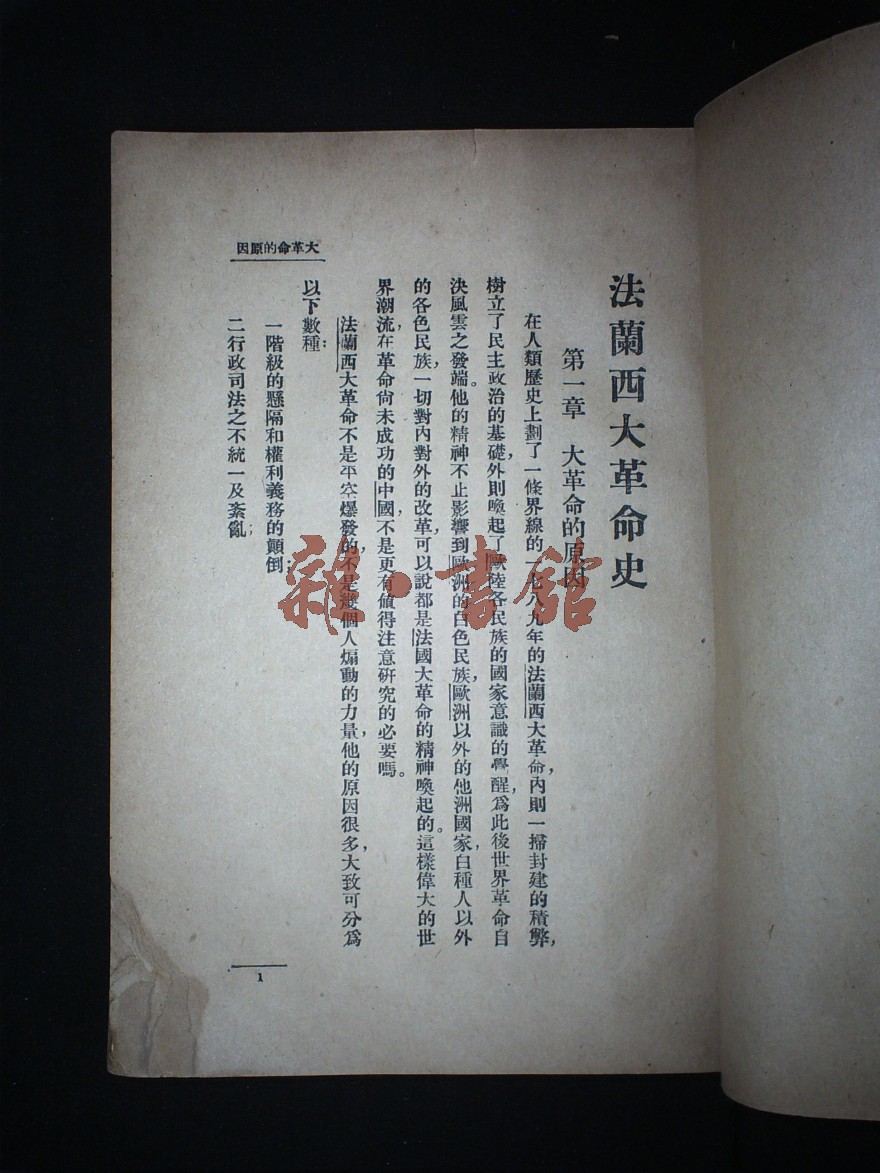 法蘭西大革命史
第一章 大革命的原因
在人類歷史上劃了一條界線的一七八九年的法蘭西大革命，內則一掃封建的積弊，
樹立了民主政治的基礎，外則喚起了歐陸各民族的國家意識的覺醒，爲此後世界革命自
決風雲之發端。他的精神不止影響到歐洲的白色民族，歐洲以外的他洲國家，白種人以外
的各色民族，一切對內對外的改革，可以說都是法國大革命的精神喚起的。這樣偉大的世
界潮流，在革命尙未成功的中國，不是更有値得注意硏究的必要嗎。
法蘭西大革命不是平空爆發的，不是幾個人煽動的力量，他的原因很多，大致可分爲
以下數種：
一階級的懸隔和權利義務的顛倒；
二行政司法之不統一及紊亂；
大革命的原因
1
雜·書館